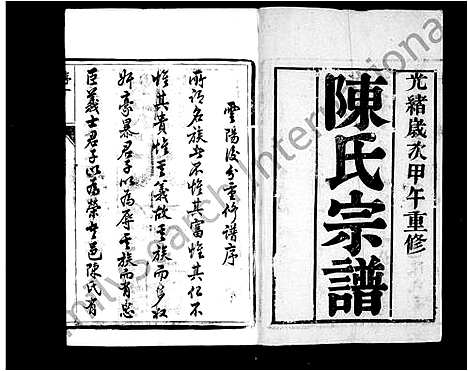 光緒歲次甲午重修
陳氏宗譜
雲陽後分重修譜序
所謂名族者不惟其富惟其仁不
惟其貴惟其義故其族而多权
奸豪暴君子以為辱其族而有忠
臣義士君子以為榮吾邑陳氏有